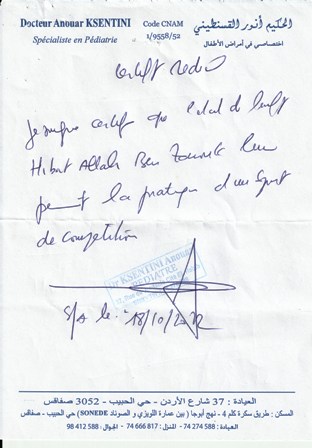 Docteur Anouar KSENTINI
Spécialiste en Pédiatrie
Code CNAM
1/9558/52
الحكيم أنور القسنطيني
اختصاصي في أمراض الأطفال
Certificat médical
Je soussigné certifie que l'état de l'enfant
Hibat Allah Ben lui
permet la pratique d'un sport
de compétition
Dr KSENTINI Anouar
PEDIATRE
S/A le: 18/10/2022
العيادة : 37 شارع الأردن - حي الحبيب - 3052 صفاقس
المسكن : طريق سكرة كلم 4 - نهج أبوجا (بين عمارة اللويزي و الصوناد SONEDE) حي الحبيب - صفاقس
العيادة : 588 274 74 - المنزل : 817 666 74 - الجوال : 588 412 98